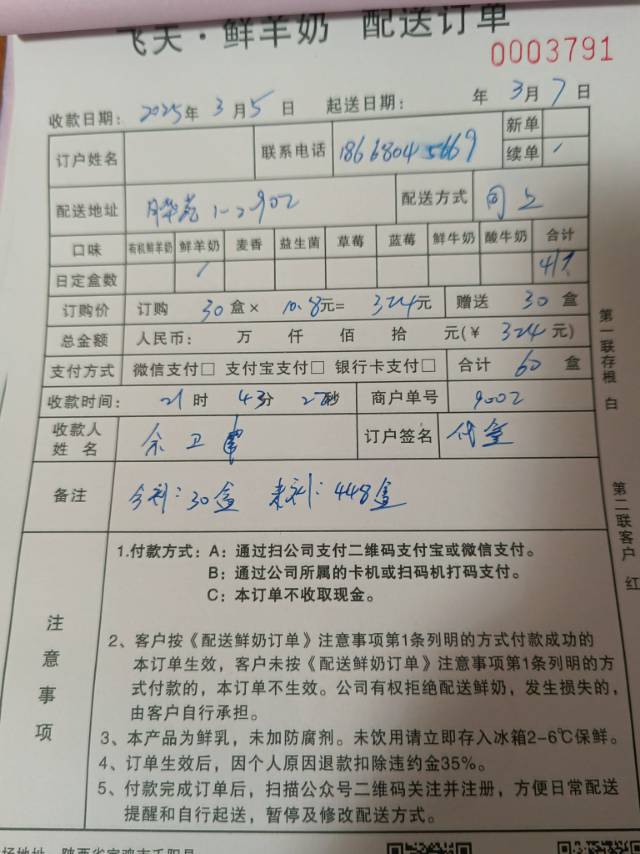 飞天·鲜羊奶 配送订单
0003791
收款日期: 2025年3月5日 起送日期: 年3月7日
订户姓名 联系电话 18668045669 新单
续单 /
配送地址 1-2-902 配送方式 同上
口味 有机鲜羊奶 鲜羊奶 麦香 益生菌 草莓 蓝莓 鲜牛奶 酸牛奶 合计
日定盒数 /
订购价 订购 30盒× 10.8元= 324元 赠送 30盒
总金额 人民币: 万 仟 佰 拾 元(¥ 324元)
支付方式 微信支付□ 支付宝支付□ 银行卡支付□ 合计 60盒
收款时间: 21时 43分 27秒 商户单号 9002
收款人
姓名 余卫 订户签名 代
备注 30盒 448盒
第一联存根 白
第二联客户 红
注意事项
1.付款方式: A: 通过扫公司支付二维码支付宝或微信支付。
B: 通过公司所属的卡机或扫码机打码支付。
C: 本订单不收取现金。
2、客户按《配送鲜奶订单》注意事项第1条列明的方式付款成功的
本订单生效，客户未按《配送鲜奶订单》注意事项第1条列明的方
式付款的，本订单不生效。公司有权拒绝配送鲜奶，发生损失的，
由客户自行承担。
3、本产品为鲜乳，未加防腐剂。未饮用请立即存入冰箱2-6℃保鲜。
4、订单生效后，因个人原因退款扣除违约金35%。
5、付款完成订单后，扫描公众号二维码关注并注册，方便日常配送
提醒和自行起送，暂停及修改配送方式。